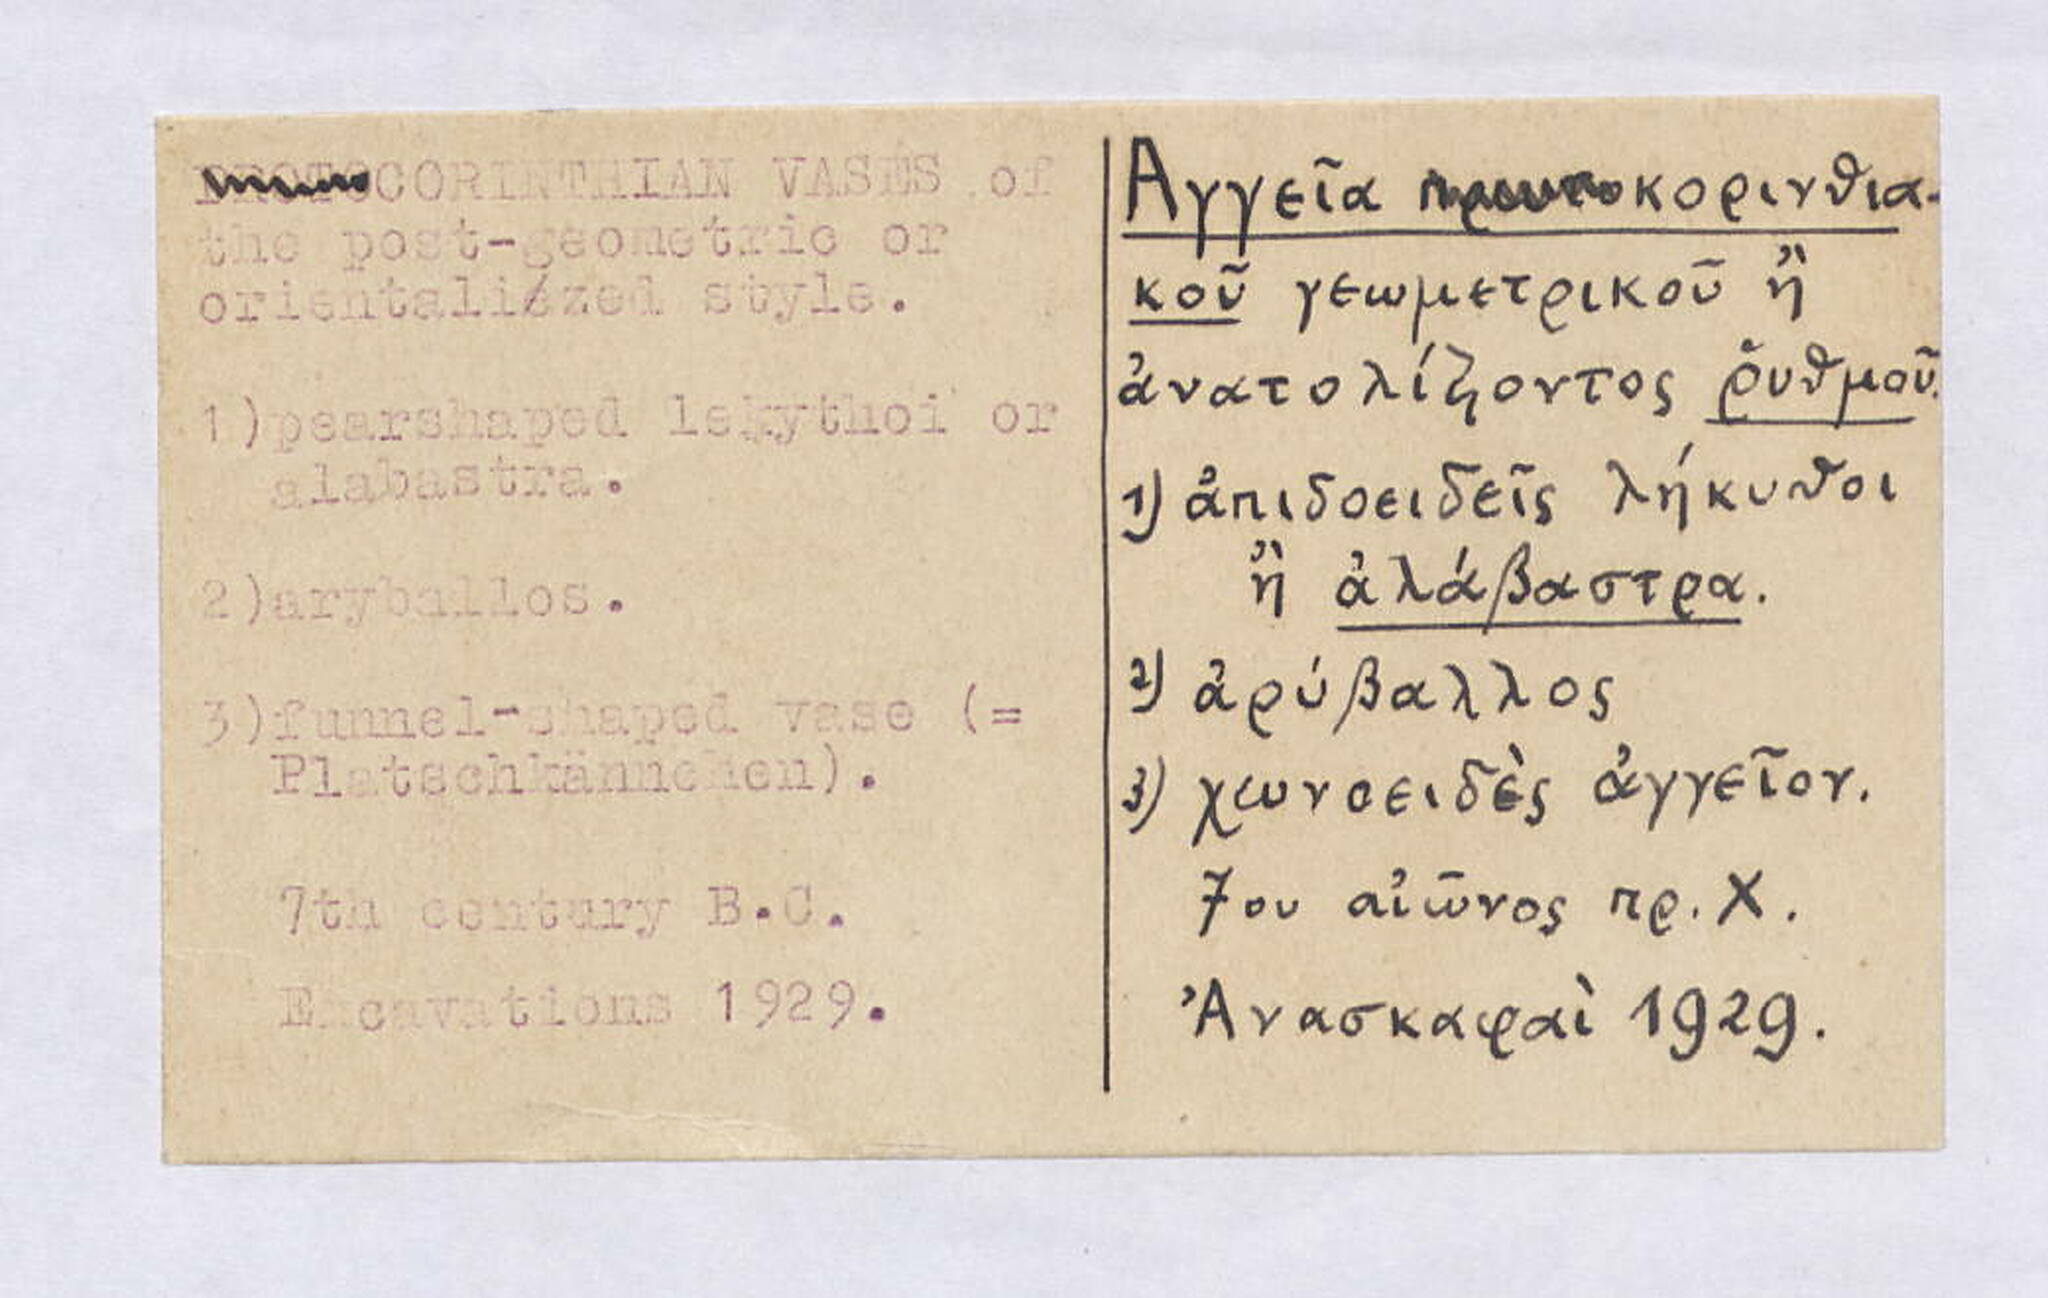 PROTOCORINTHIAN VASES of
the post-geometric or
orientalized style.
1)pearshaped lekythoi or
alabastra.
2)aryballos.
3)funnel-shaped vase (=
Platschkännchen).
7th century B.C.
Excavations 1929.
Αγγεῖα πρωτοκορινθια-
κοῦ γεωμετρικοῦ ἢ
ἀνατολίζοντος ῥυθμοῦ.
1) ἀπιδοειδεῖς λήκυθοι
ἢ ἀλάβαστρα.
2) ἀρύβαλλος
3) χωνοειδὲς ἀγγεῖον.
7ου αἰῶνος πρ. Χ.
Ἀνασκαφαὶ 1929.